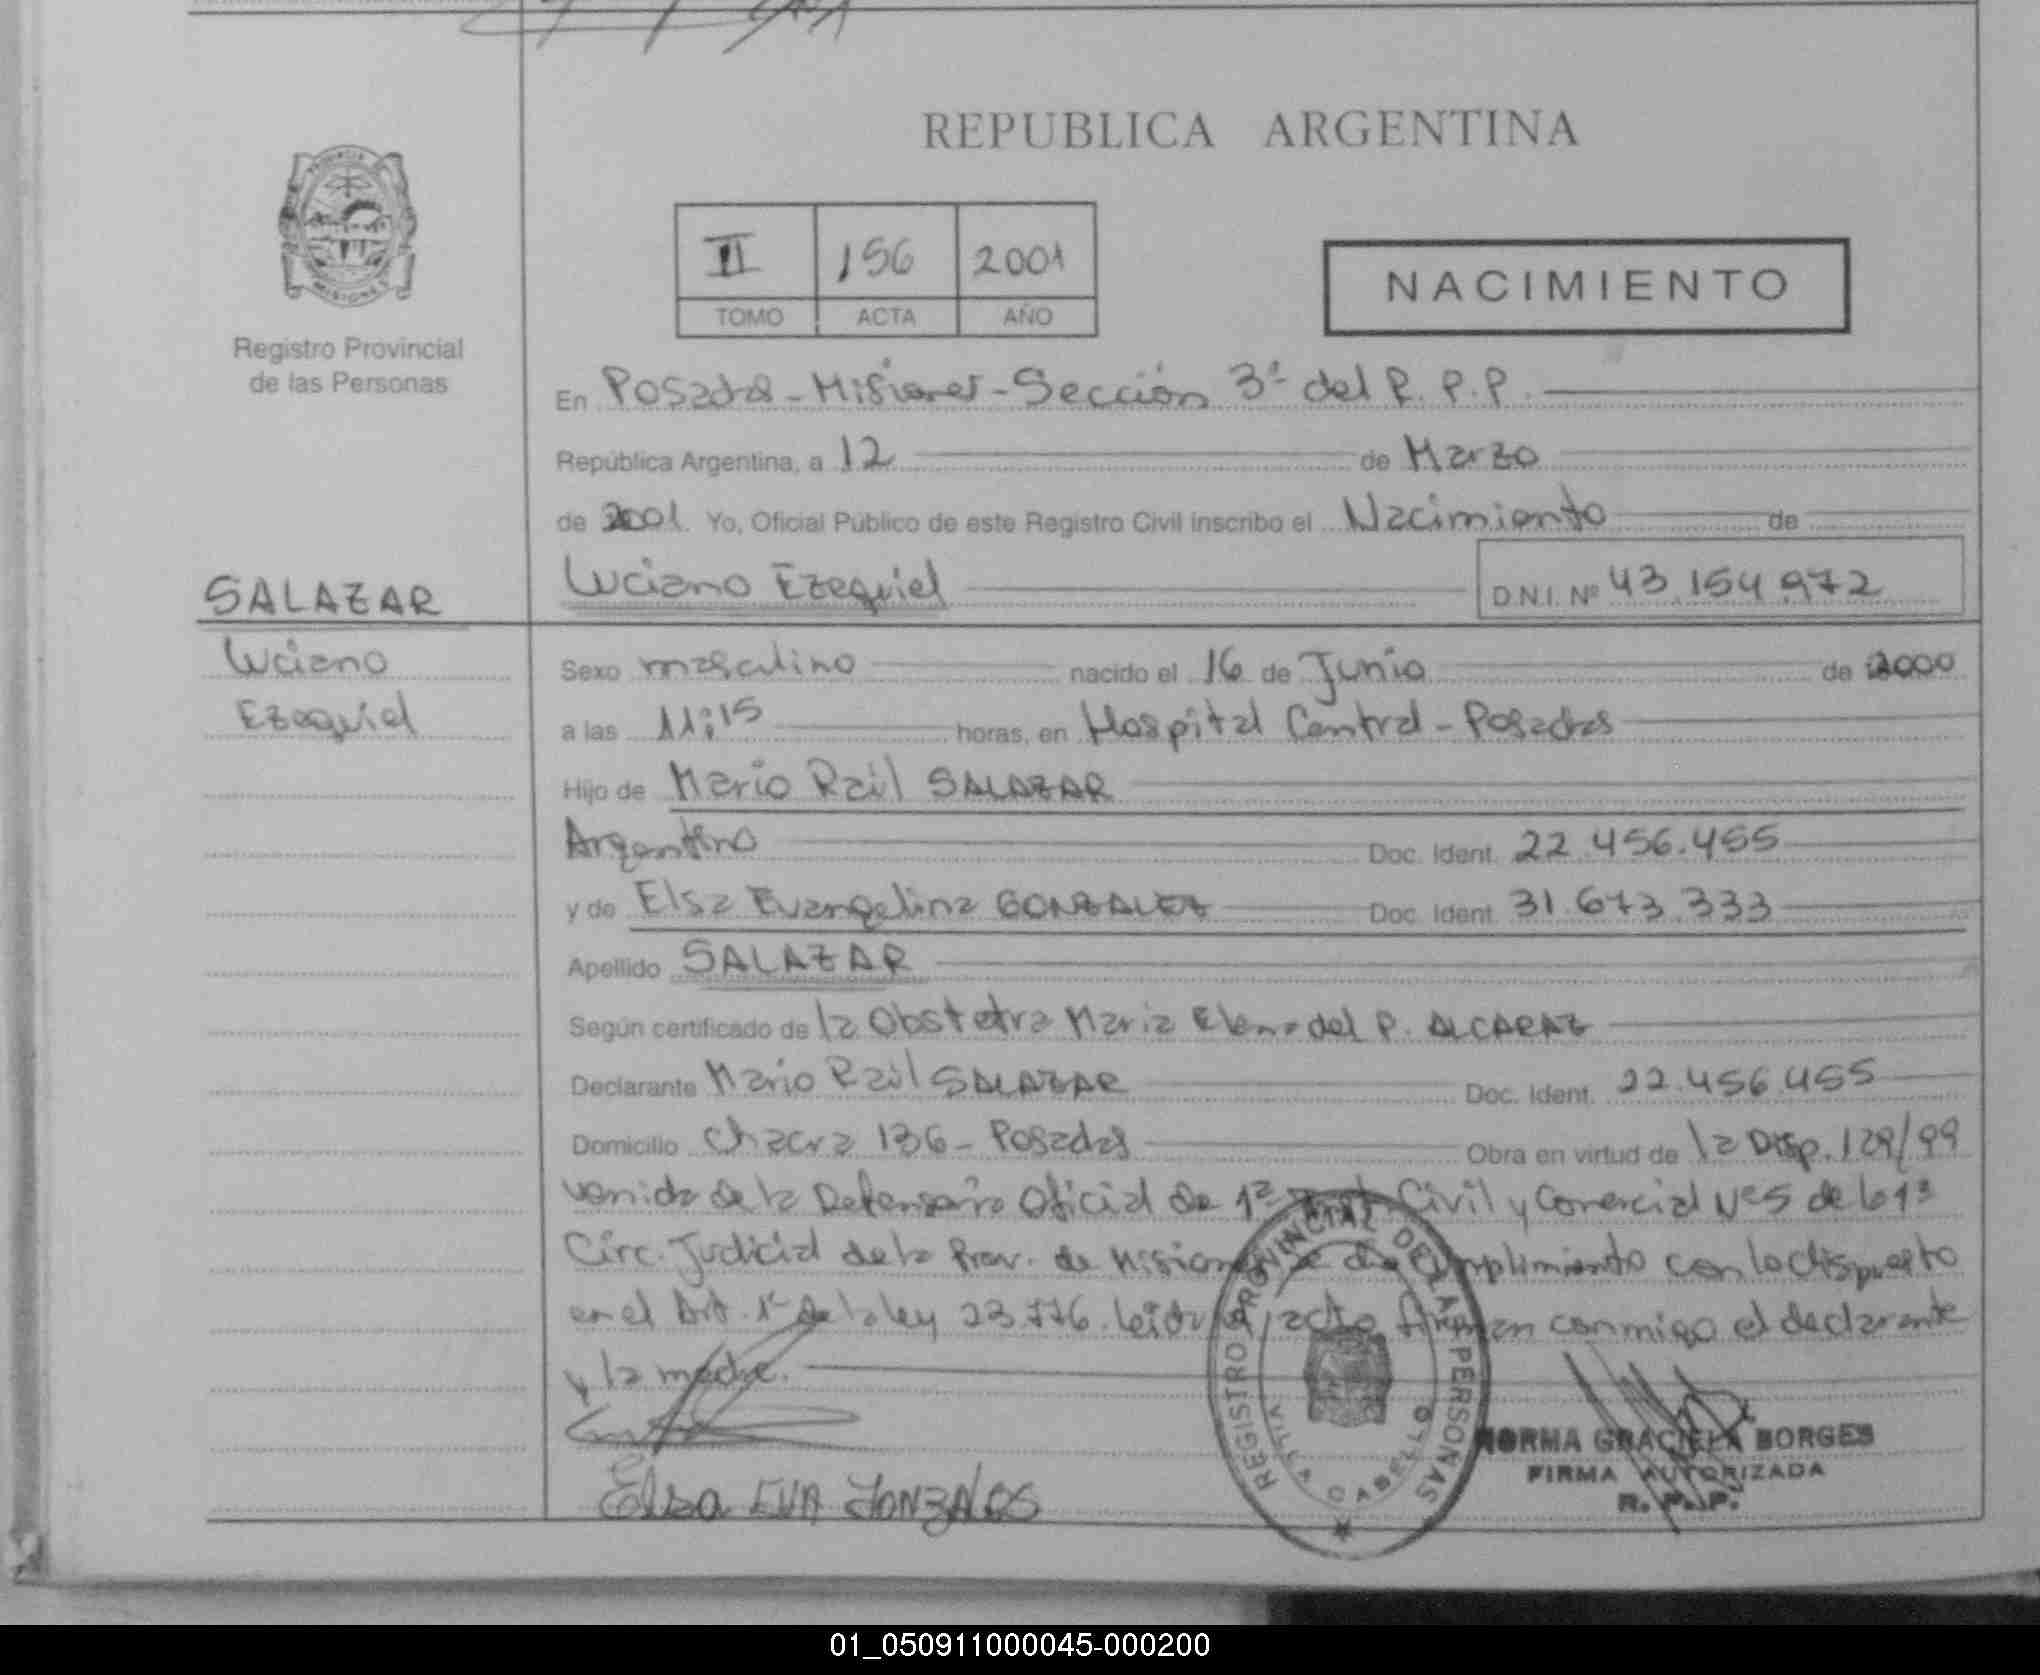 REPUBLICA ARGENTINA
II 156 2001
TOMO ACTA AÑO
NACIMIENTO
Registro Provincial
de las Personas
En Posadas - Misiones - Sección 3ª del R. P. P.
República Argentina, a 12 de Marzo
de 2001. Yo, Oficial Público de este Registro Civil inscribo el Nacimiento de
SALAZAR
Luciano
Ezequiel
Luciano Ezequiel D.N.I. Nº 43.154.972
Sexo masculino nacido el 16 de Junio de 2000
a las 11:15 horas, en Hospital Central - Posadas
Hijo de Mario Raúl SALAZAR
Argentino Doc. Ident. 22.456.455
y de Elsa Evangelina GONZALEZ Doc. Ident. 31.673.333
Apellido SALAZAR
Según certificado de la Obstetra Maria Elena del P. ALCARAZ
Declarante Mario Raúl SALAZAR Doc. Ident. 22.456.455
Domicilio Chacra 136 - Posadas Obra en virtud de la Disp. 129/99
venida de la Defensoría Oficial de 1ª Civil y Comercial Nº 5 de la 1ª
Circ. Judicial de la Prov. de Misiones cumplimiento con lo dispuesto
en el Art. 1º de la ley 23.776. Leída el acta firman conmigo el declarante
y la madre.
Elsa EVA GONZALES
REGISTRO PROVINCIAL DE LAS PERSONAS
VILLA CABELLO
NORMA GRACIELA BORGES
FIRMA AUTORIZADA
R. P. P.
PROVINCIA
MISIONES
01_050911000045-000200